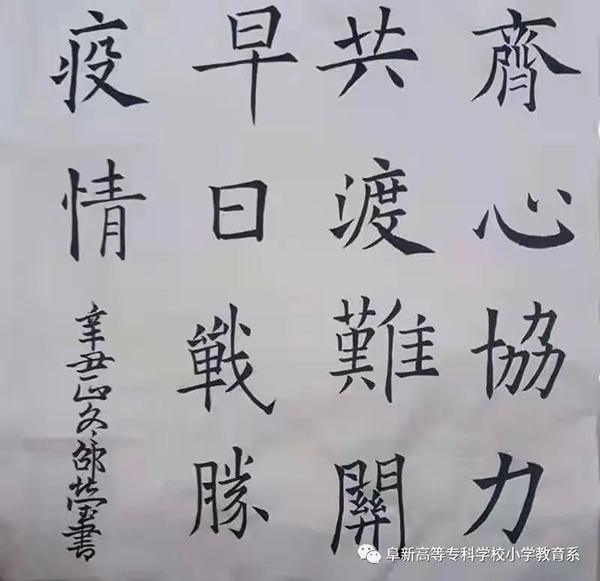 齊心協力
共渡難關
早日戰勝
疫情
辛丑正冬邵瑩書
阜新高等专科学校小学教育系